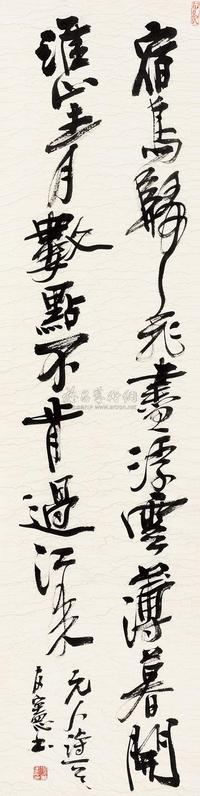 宿鳥歸飛盡浮雲薄暮開
淮山青數點不肯過江來
元人詩一首
憲书
雅昌藝術網
www.artron.net